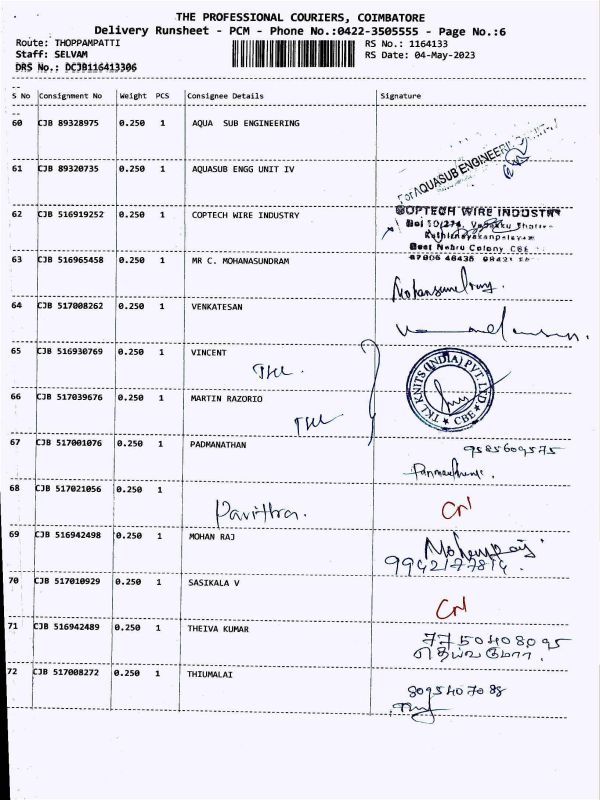 THE PROFESSIONAL COURIERS, COIMBATORE
Delivery Runsheet - PCM - Phone No.:0422-3505555 - Page No.:6
Route: THOPPAMPATTI RS No.: 1164133
Staff: SELVAM RS Date: 04-May-2023
DRS No.: DCJB116413306
S No Consignment No Weight PCS Consignee Details Signature
60 CJB 89328975 0.250 1 AQUA SUB ENGINEERING
61 CJB 89320735 0.250 1 AQUASUB ENGG UNIT IV
For AQUASUB ENGINEERING
62 CJB 516919252 0.250 1 COPTECH WIRE INDUSTRY
COPTECH WIRE INDUSTRY
Kathirnayakanpalayam
Nehru Colony CBE
63 CJB 516965458 0.250 1 MR C. MOHANASUNDRAM
64 CJB 517008262 0.250 1 VENKATESAN
65 CJB 516930769 0.250 1 VINCENT
TKL KNITS (INDIA) PVT. LTD
CBE
66 CJB 517039676 0.250 1 MARTIN RAZORIO
67 CJB 517001076 0.250 1 PADMANATHAN
9585609575
68 CJB 517021056 0.250 1
Pavithra.
69 CJB 516942498 0.250 1 MOHAN RAJ
Mohanraj
9942177814.
70 CJB 517010929 0.250 1 SASIKALA V
71 CJB 516942489 0.250 1 THEIVA KUMAR
7750408095
தெய்வகுமார்.
72 CJB 517008272 0.250 1 THIUMALAI
8095407088